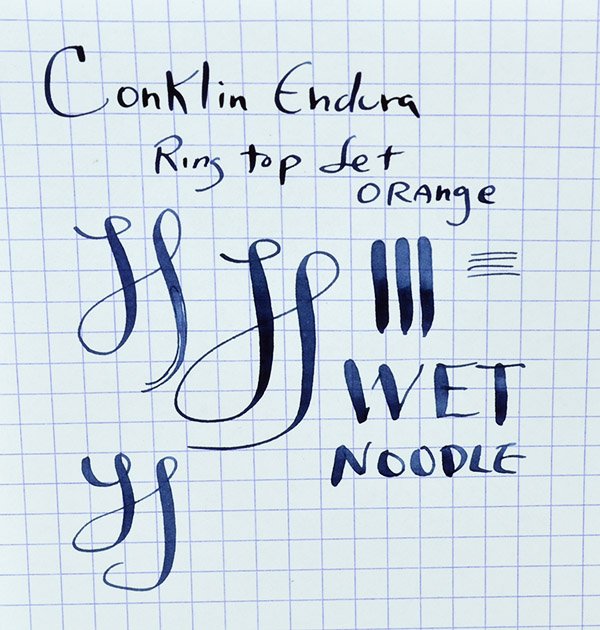 Conklin Endura
Ring top Set
ORANge
WET
NOODLE